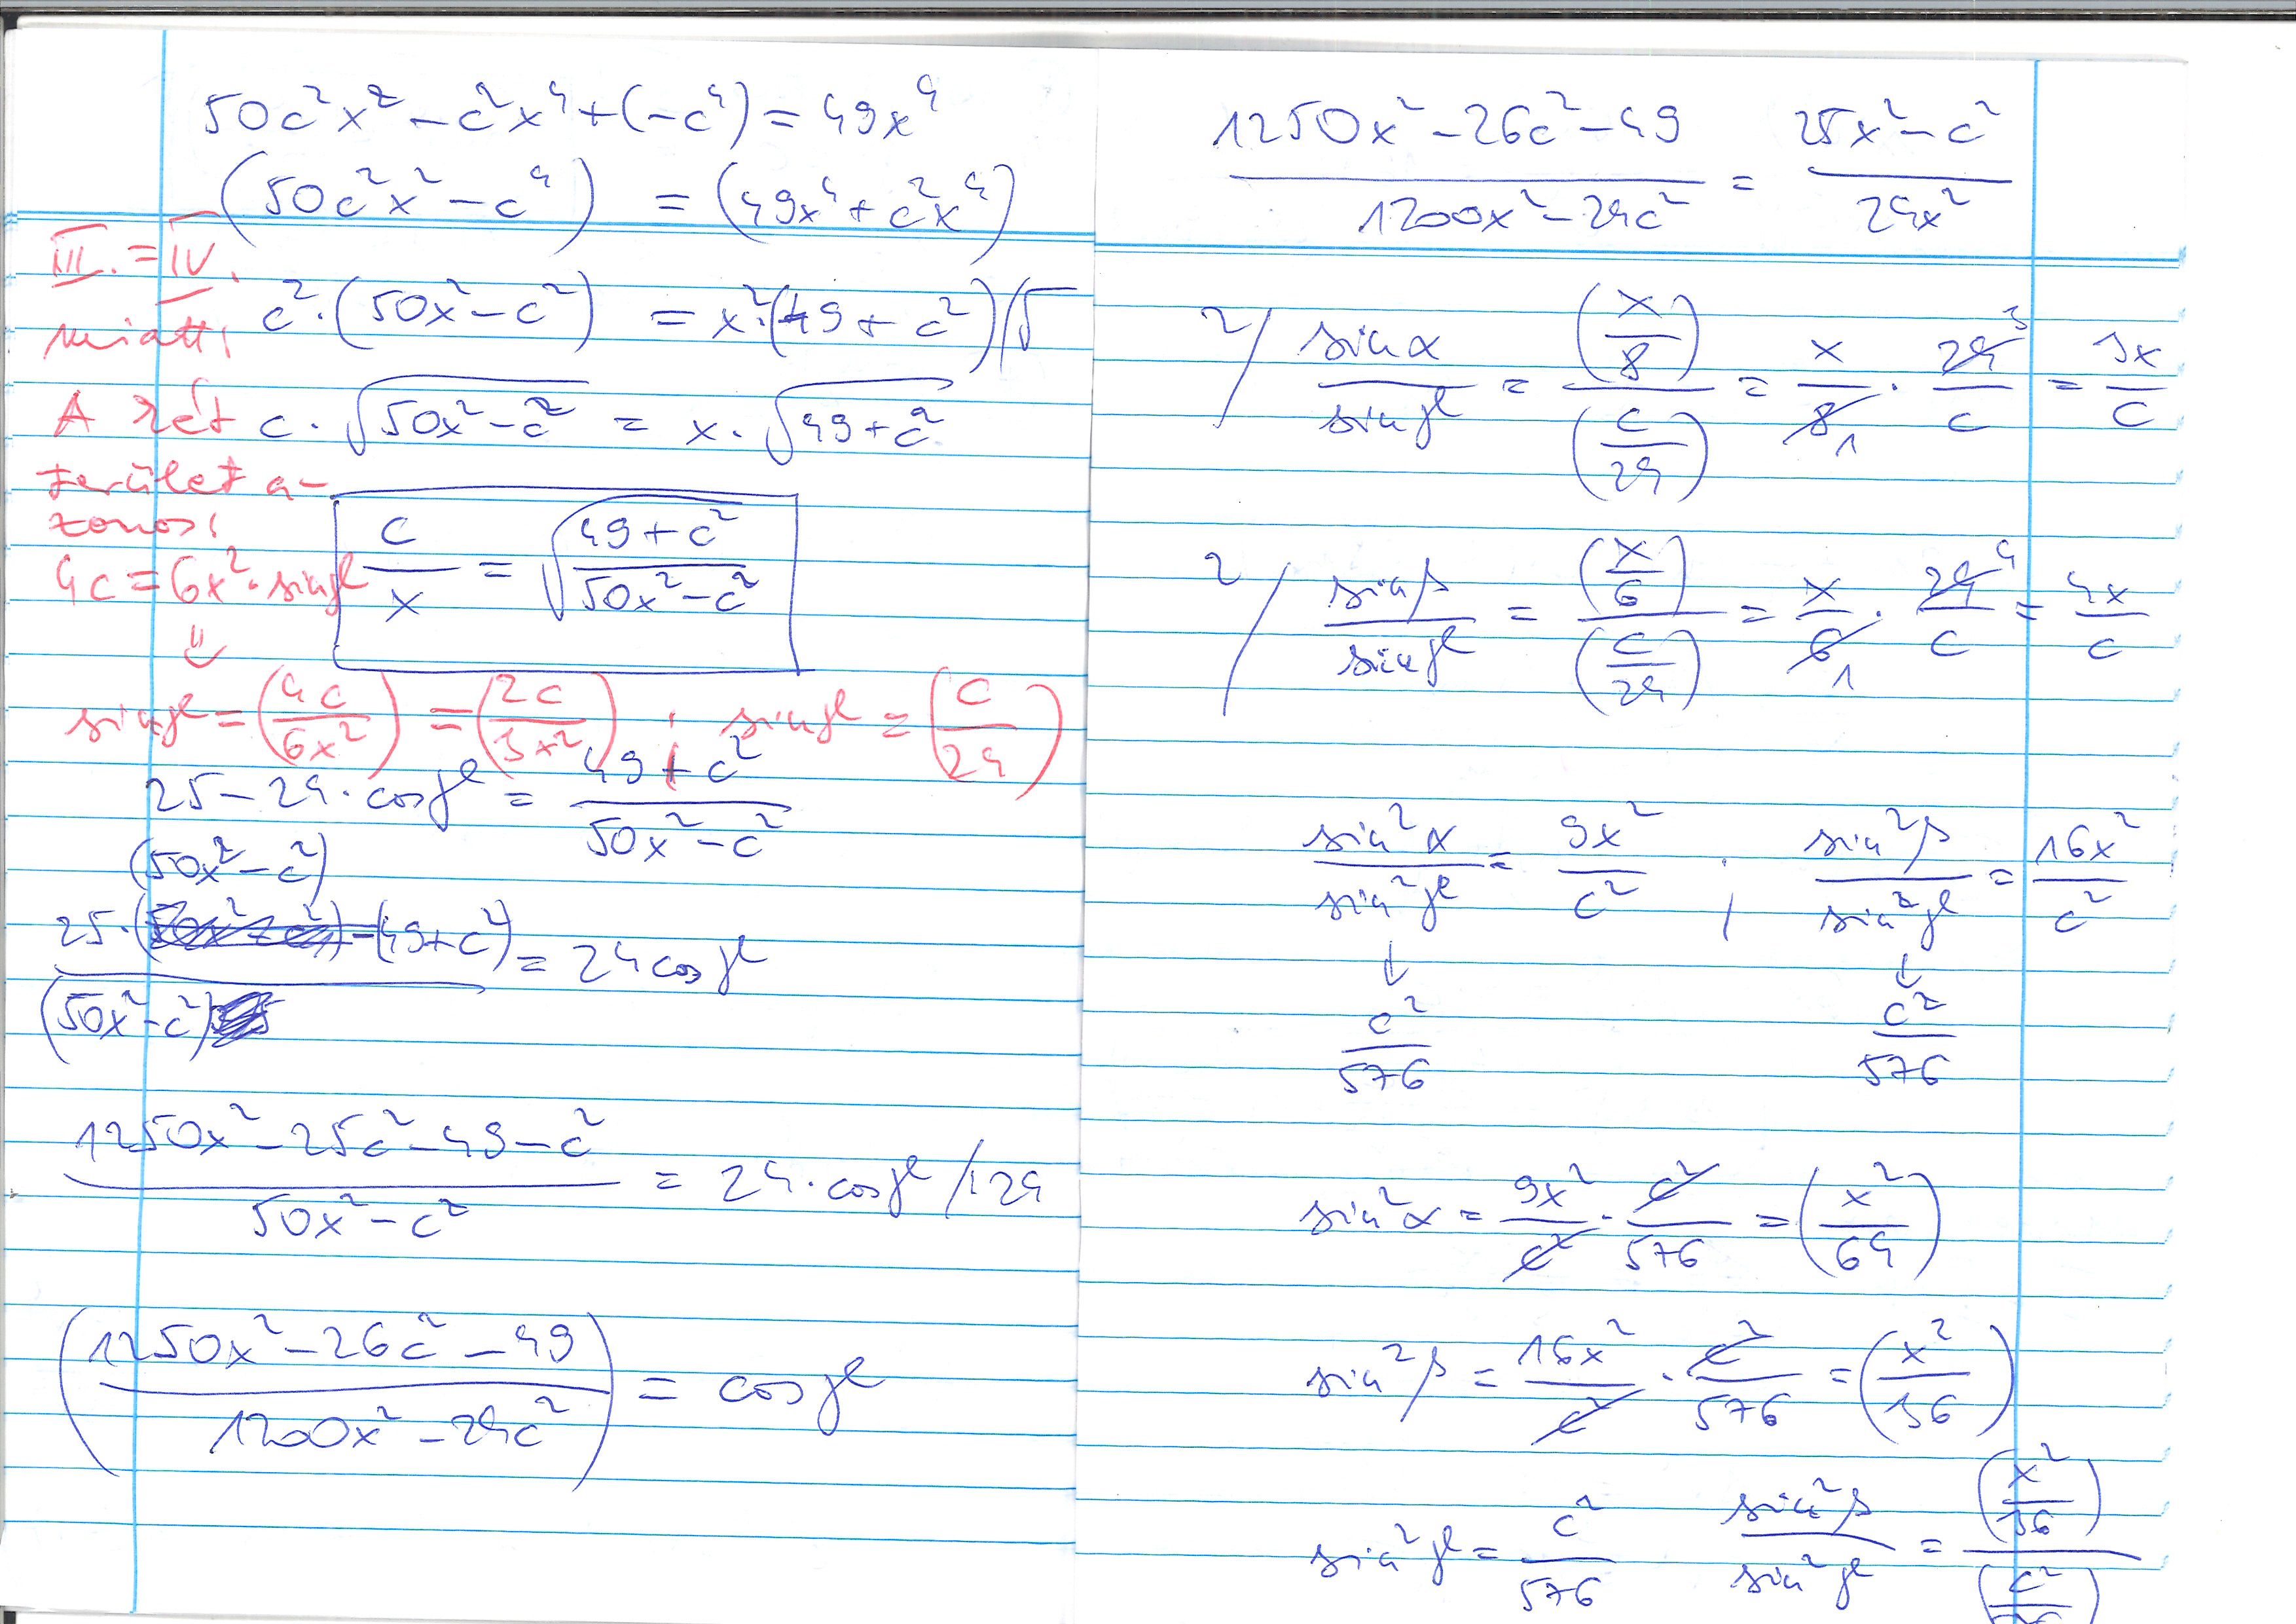 50c²x² - c²x⁴ + (-c⁴) = 49x⁴
(50c²x² - c⁴) = (49x⁴ + c²x⁴)
III. = IV.
miatt:
c²·(50x² - c²) = x²·(49 + c²) /√
A két
c·√(50x² - c²) = x·√(49 + c²)
terület a-
zonos:
c/x = √((49 + c²)/(50x² - c²))
4c = 6x²·sinγ
⇓
sinγ = (4c/6x²) = (2c/3x²) ; sinγ = (c/24)
25 - 24·cosγ = (49 + c²)/(50x² - c²)
(50x² - c²)
25·(50x² - c²) - (49 + c²) / (50x² - c²) = 24cosγ
(1250x² - 25c² - 49 - c²)/(50x² - c²) = 24·cosγ /:24
((1250x² - 26c² - 49)/(1200x² - 24c²)) = cosγ
(1250x² - 26c² - 49)/(1200x² - 24c²) = (25x² - c²)/(24x²)
2/ sinα/sinγ = (x/8)/(c/24) = x/8₁ · 24³/c = 3x/c
2/ sinβ/sinγ = (x/6)/(c/24) = x/6₁ · 24⁴/c = 4x/c
sin²α/sin²γ = 9x²/c² ; sin²β/sin²γ = 16x²/c²
↓ ↓
c²/576 c²/576
sin²α = 9x²/c² · c²/576 = (x²/64)
sin²β = 16x²/c² · c²/576 = (x²/36)
sin²γ = c²/576 sin²β/sin²γ = (x²/36)/(c²